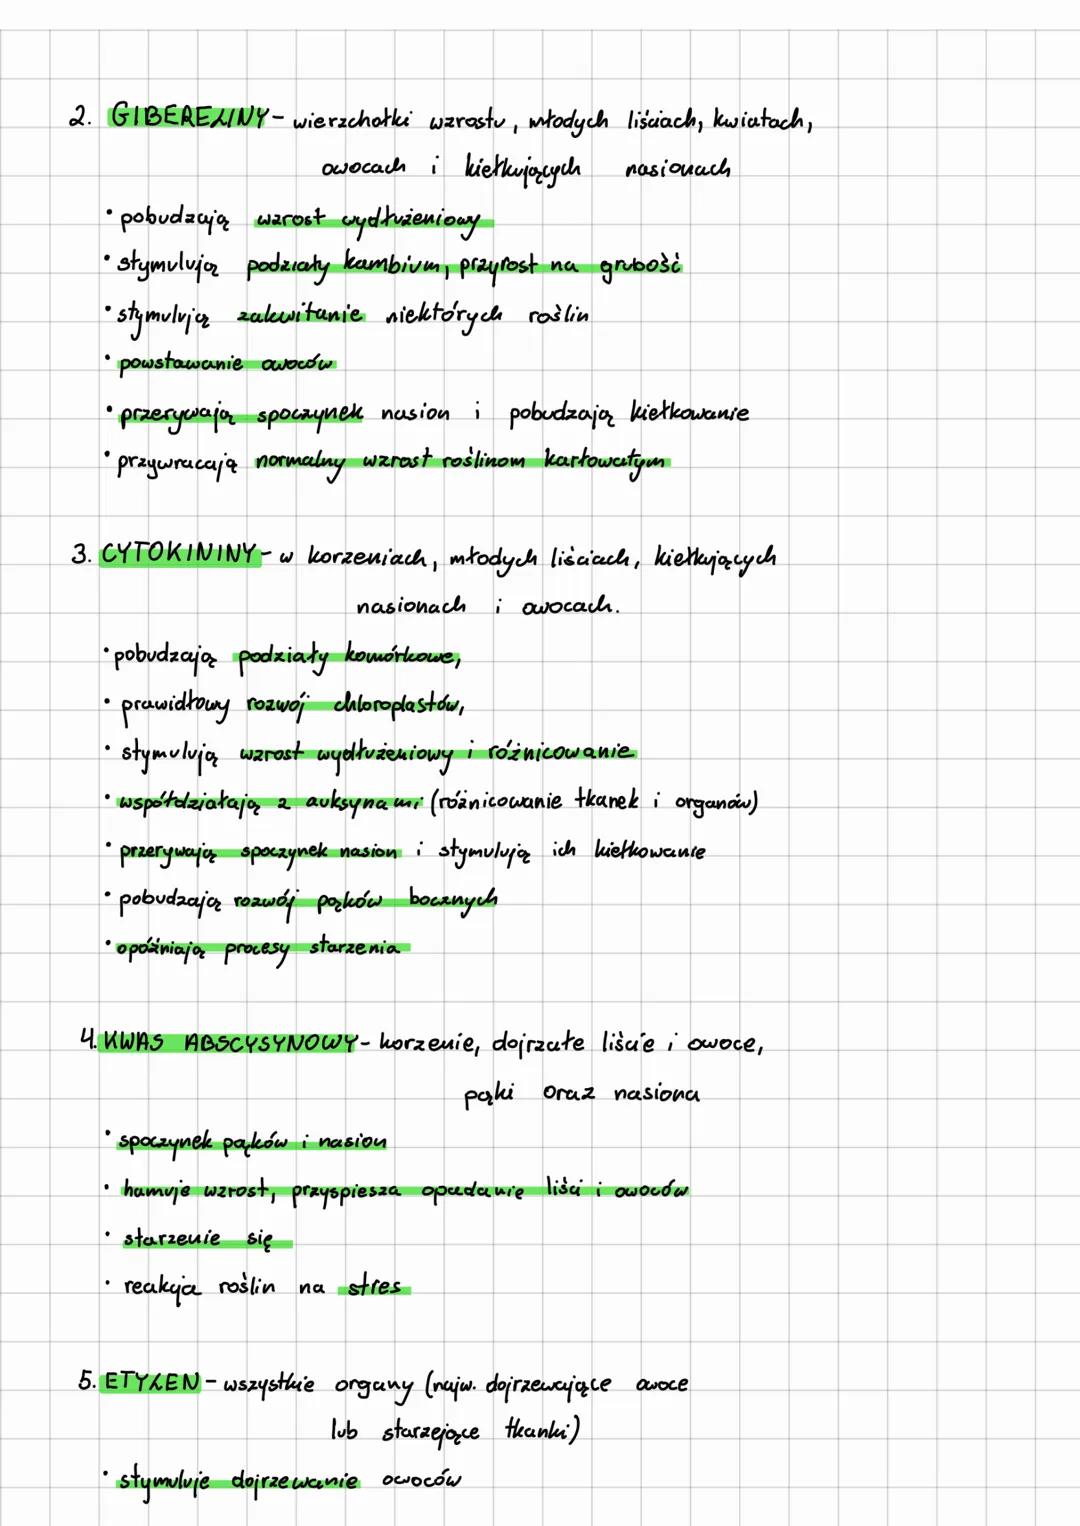 2. GIBERELINY - wierzchołki wzrostu, młodych liściach, kwiatach,
owocach i kiełkujących nasionach
• pobudzają wzrost wydłużeniowy
• stymulują podziały kambium, przyrost na grubość
• stymulują zakwitanie niektórych roślin
• powstawanie owoców
• przerywają spoczynek nasion i pobudzają kiełkowanie
• przywracają normalny wzrost roślinom karłowatym
3. CYTOKININY - w korzeniach, młodych liściach, kiełkujących
nasionach i owocach.
• pobudzają podziały komórkowe,
• prawidłowy rozwój chloroplastów,
• stymulują wzrost wydłużeniowy i różnicowanie
• współdziałają z auksynami (różnicowanie tkanek i organów)
• przerywają spoczynek nasion i stymulują ich kiełkowanie
• pobudzają rozwój pąków bocznych
• opóźniają procesy starzenia
4. KWAS ABSCYSYNOWY - korzenie, dojrzałe liście i owoce,
pąki oraz nasiona
• spoczynek pąków i nasion
• hamuje wzrost, przyspiesza opadanie liści i owoców
• starzenie się
• reakcja roślin na stres
5. ETYLEN - wszystkie organy (najw. dojrzewające owoce
lub starzejące tkanki)
• stymuluje dojrzewanie owoców